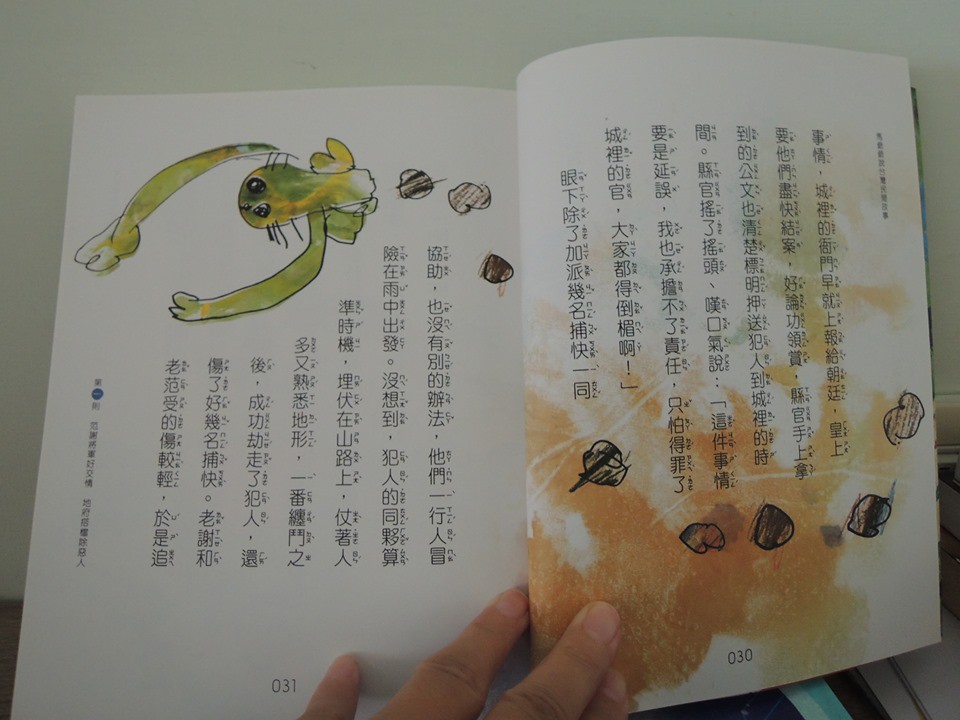 馬爺爺說台灣民間故事
事情，城裡的衙門早就上報給朝廷，皇上
要他們盡快結案，好論功領賞，縣官手上拿
到的公文也清楚標明押送犯人到城裡的時
間。縣官搖了搖頭、嘆口氣說：「這件事情
要是延誤，我也承擔不了責任，只怕得罪了
城裡的官，大家都得倒楣啊！」
眼下除了加派幾名捕快一同
030
協助，也沒有別的辦法，他們一行人冒
險在雨中出發。沒想到，犯人的同夥算
準時機，埋伏在山路上，仗著人
多又熟悉地形，一番纏鬥之
後，成功劫走了犯人，還
傷了好幾名捕快。老謝和
老范受的傷較輕，於是追
第一則 范謝將軍好交情 地府搭檔除惡人
031